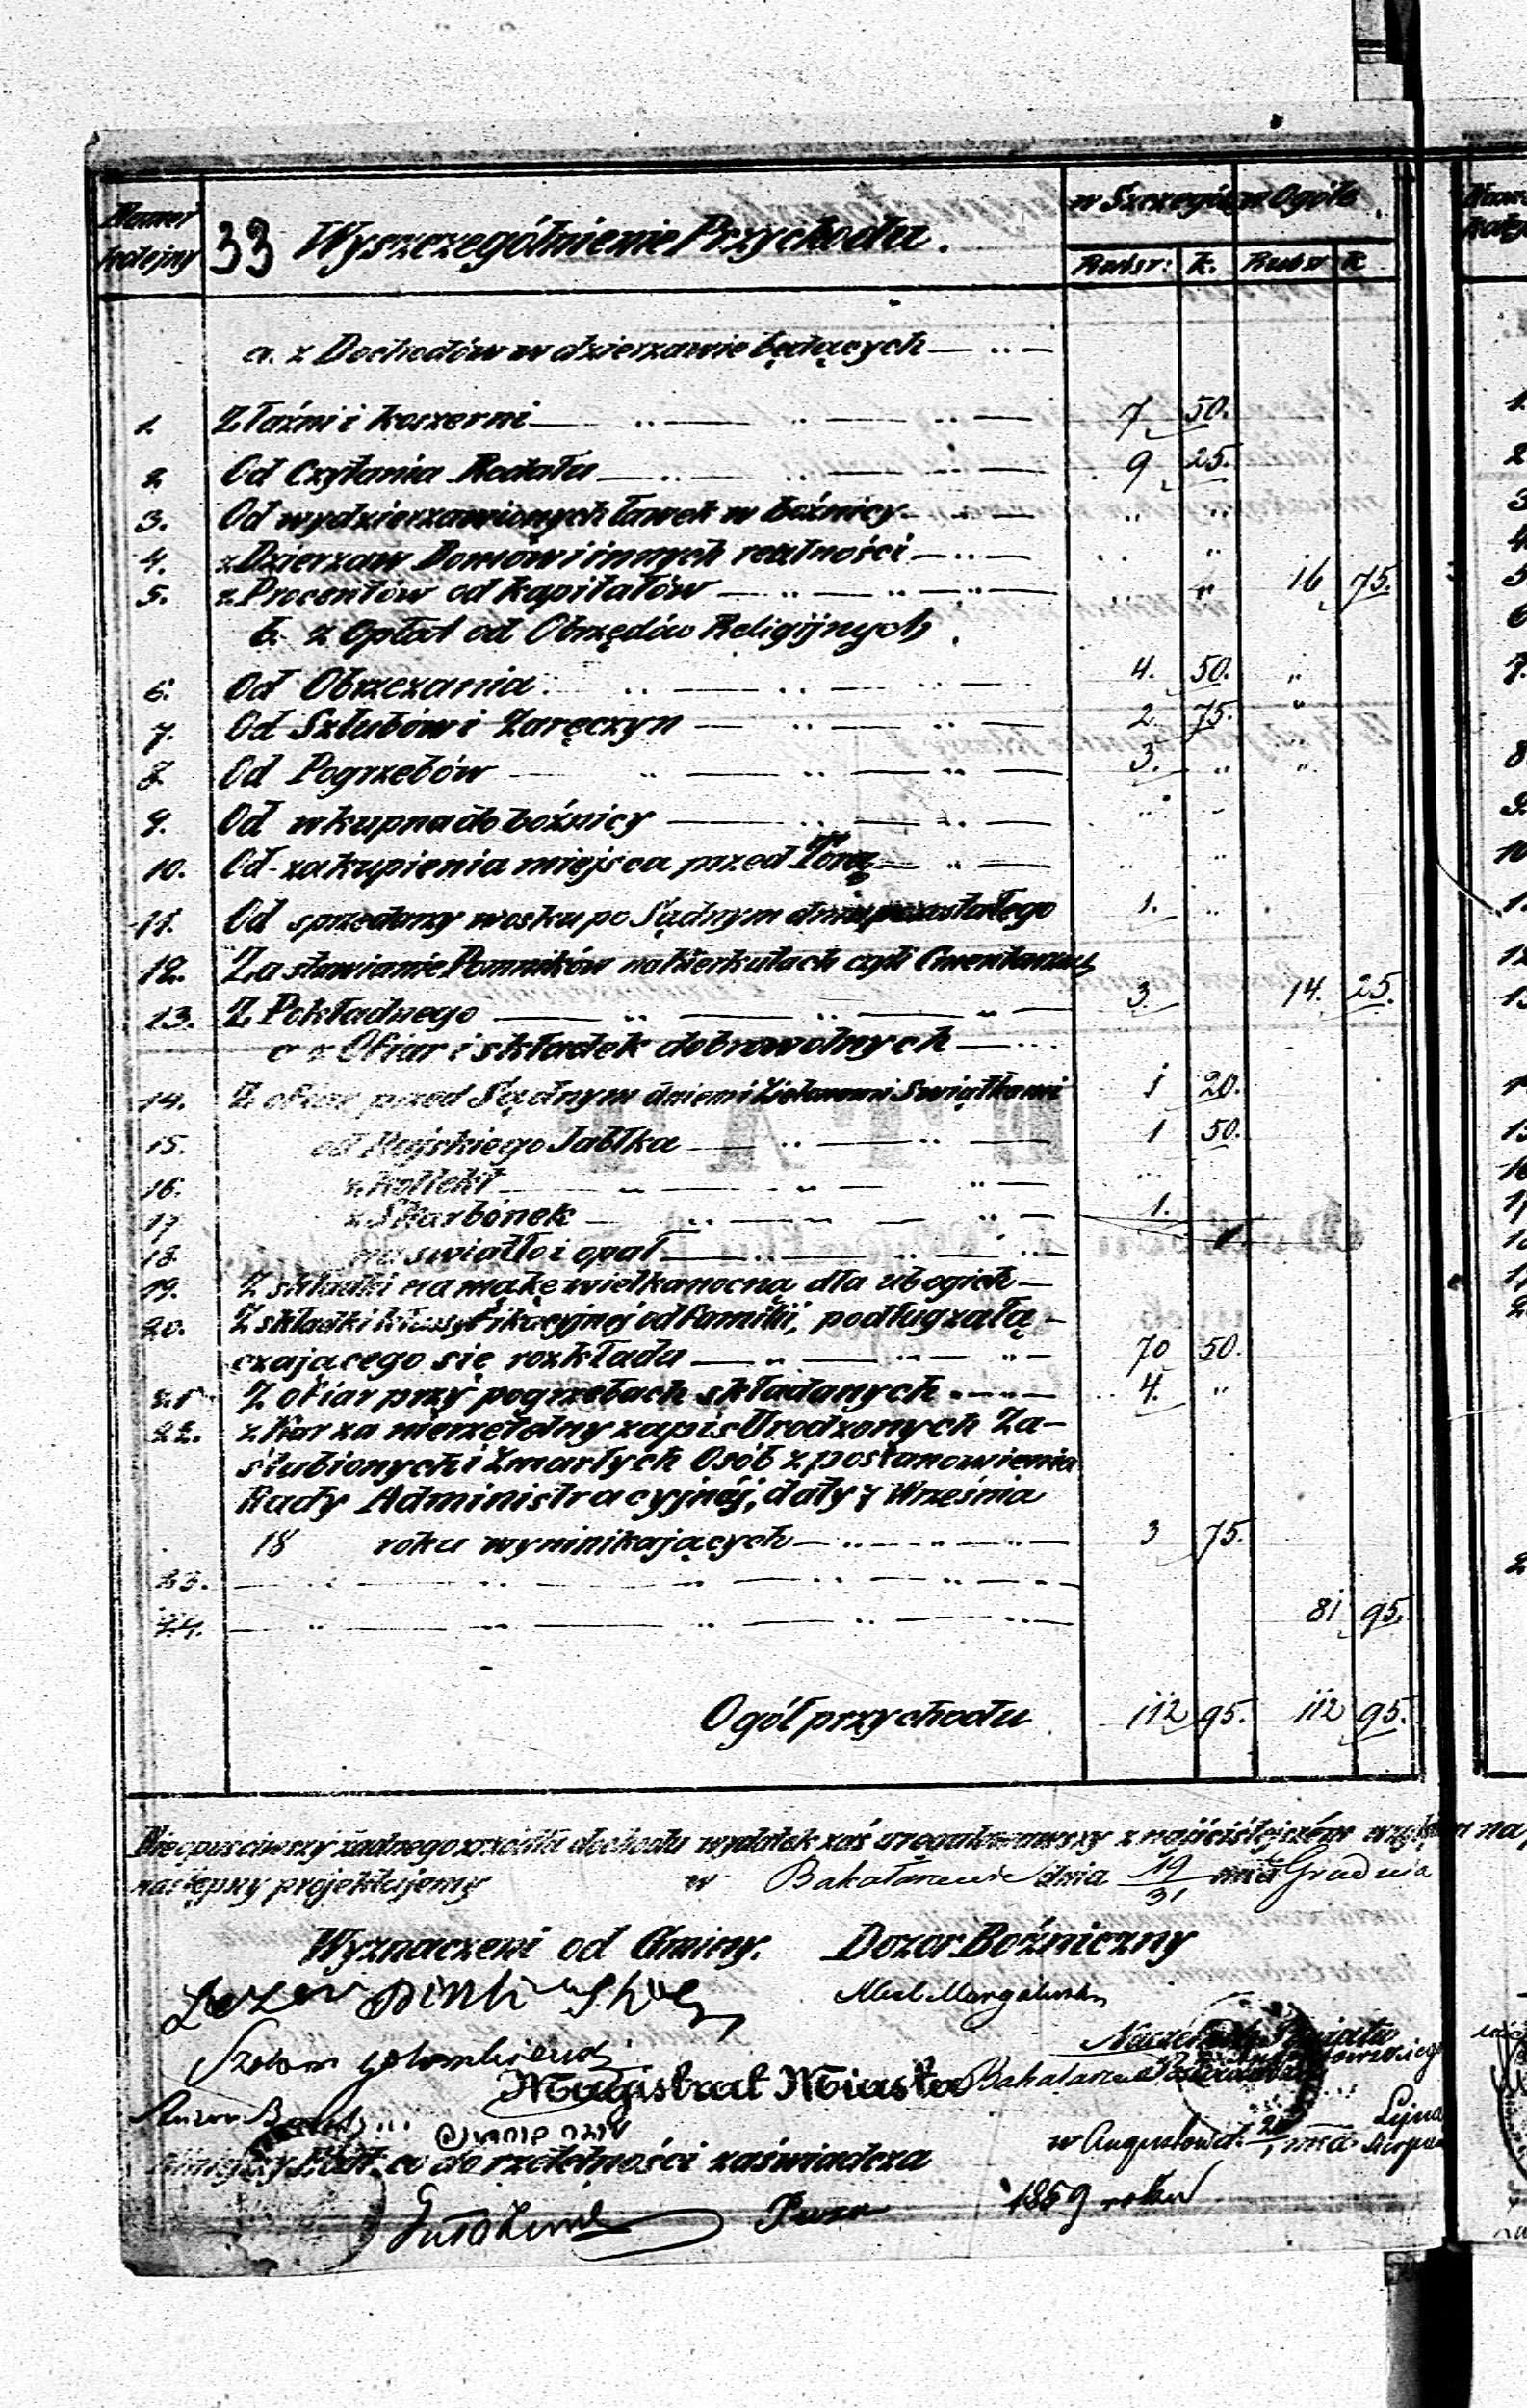 Numer kolejny 33 Wyszczególnienie Przychodu. w Szczególe w Ogóle
Rubsr: k. Rubsr k
a. z Dochodów w dzierzawie będących
1. Z łaźni i koszerni 7 50.
2 Od Czytania Rodału 9 25.
3. Od wydzierzawionych ławek w bóżnicy
4. z Dzierzaw Domów i innych realności
5. z Procentów od kapitałów 16 75.
b. z Opłat od Obrzędów Religijnych.
6. Od Obrzezania 4. 50.
7. Od Szlubów i Zaręczyn 2. 75.
8 Od Pogrzebów 3.
9. Od wkupna do boźnicy
10. Od zakupienia miejsca przed Torą
11. Od sprzedarzy wosku po Sądnym dniu pozostałego 1.
12. Za stawianie Pomników na kierkutach czyli Cmentarzu
13. Z Pokładnego 3 14. 25.
c z Ofiar i składek dobrowolnych
14. Z ofiar przed Sądnym dniem i Zielonemi Swiątkami 1 20.
15. od Rajskiego Jabłka 1 50.
16. z Kollekt
17 z Skarbonek 1.
18. na swiatło i opał
19. Z składki na mąkę wielkanocną dla ubogich
20. Z składki klassyfikacyjnej od Familii, podług załą-
czającego się rozkładu 70 50.
21 Z ofiar przy pogrzebach składanych 4.
22. z Kar za nierzetelny zapis Urodzonych Za-
ślubionych i Zmarłych Osób z postanowienia
Rady Administracyjnéj, daty 7 Września
18 roku wyninikających 3 75.
23.
24. 81 95.
Ogół przychodu 112 95. 112 95.
Nieopuściwszy żadnego źródła dochodu wydatek zaś uregulowawszy z najściślejszém
następny projektujemy w Bakałarzewie dnia 19/31 mca Grudnia
Wyznaczeni od Gminy. Dozor Boźniczny
Szolom
Magistrat Miasta Bakalarzewa
w Augustowie d.
co do rzetelności zaświadcza
1859 roku